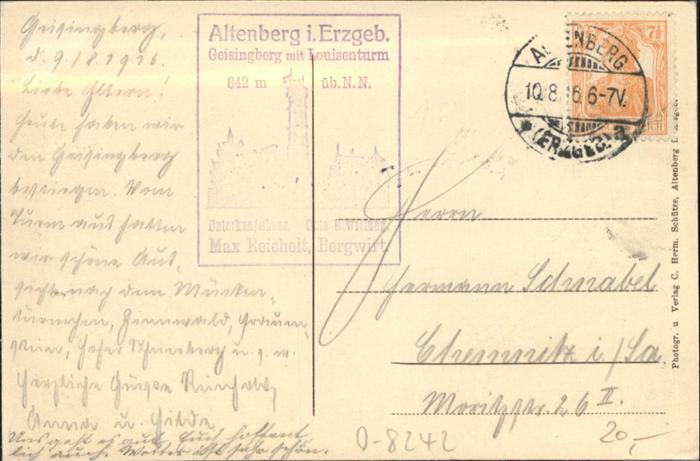 Geisingberg,
d. 9./8.1916.
Liebe Eltern!
Heute haben wir
den Geisingberg
bestiegen. Vom
Turm aus hatten
wir schöne Aus-
sicht nach dem Mücken-
türmchen, Zinnwald, Grauen-
stein, hoher Schneeberg u.s.w.
Herzliche Grüsse
Anna u. Hilde
Uns geht es gut, Euch hoffent-
lich auch. Wetter ist sehr schön.
Altenberg i. Erzgeb.
Geisingberg mit Louisenturm
842 m üb. N.N.
Unterkunftshaus. Gute Bewirtung.
Max Reichelt, Bergwirt.
ALTENBERG
10.8.16.6-7V.
(ERZGEB.) a
7½
Herrn
Hermann Schnabel
Chemnitz i/Sa.
Moritzstr. 26 II.
Photogr. u Verlag C. Herm. Schütze, Altenberg i. Erzgeb.
0-8242
20,-